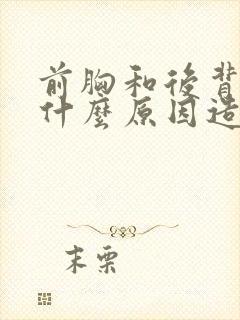 前胸和後背
什麼原因造
末栗